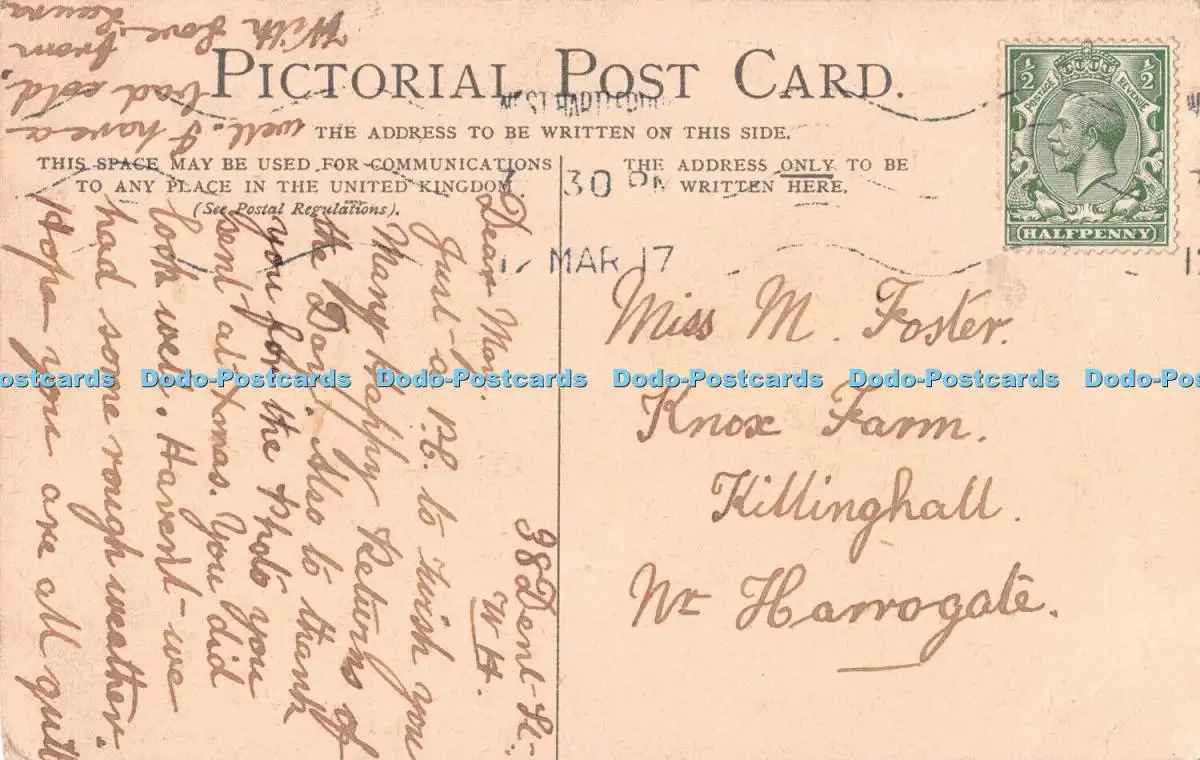 PICTORIAL POST CARD.
THE ADDRESS TO BE WRITTEN ON THIS SIDE.
THIS SPACE MAY BE USED FOR COMMUNICATIONS
TO ANY PLACE IN THE UNITED KINGDOM
(See Postal Regulations).
THE ADDRESS ONLY TO BE
WRITTEN HERE.
½ ½
POSTAGE REVENUE
HALFPENNY
WEST HARTLEPOOL
30 PM
MAR 17
Miss M. Foster.
Knox Farm.
Killinghall.
Nr Harrogate.
38 Dent St.
W H.
Dear May.
Just a P.C. to wish you
Many Happy Returns of
the Day. Also to thank
you for the photo you
sent at Xmas. You did
look well. Havent we
had some rough weather.
Hope you are All quite
well. I have a
bad cold.
With Love from
Laura
Dodo-Postcards Dodo-Postcards Dodo-Postcards Dodo-Postcards Dodo-Postcards Dodo-Postcards